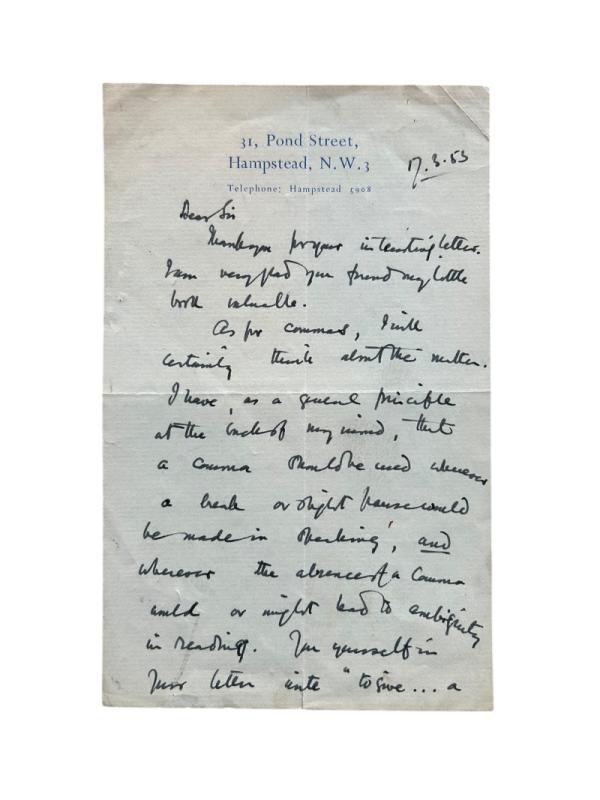 31, Pond Street,
Hampstead, N.W.3
Telephone: Hampstead 5908
17.3.53
Dear Sir
Thank you for your interesting letter.
I am very glad you found my little
book valuable.
As for commas, I will
certainly think about the matter.
I have, as a general principle
at the back of my mind, that
a comma should be used wherever
a break or slight pause would
be made in speaking, and
wherever the absence of a comma
would or might lead to ambiguity
in reading. You yourself in
your letter write "to give... a